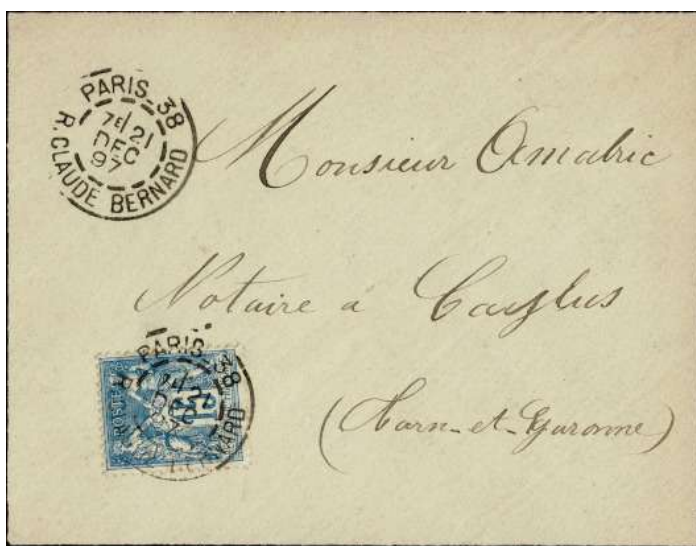 PARIS_38
7E/21
DEC
97
R. CLAUDE BERNARD
Monsieur Amalric
Notaire a Caylus
(Tarn-et-Garonne)
PARIS_38
7E/21
DEC
97
POSTE
15